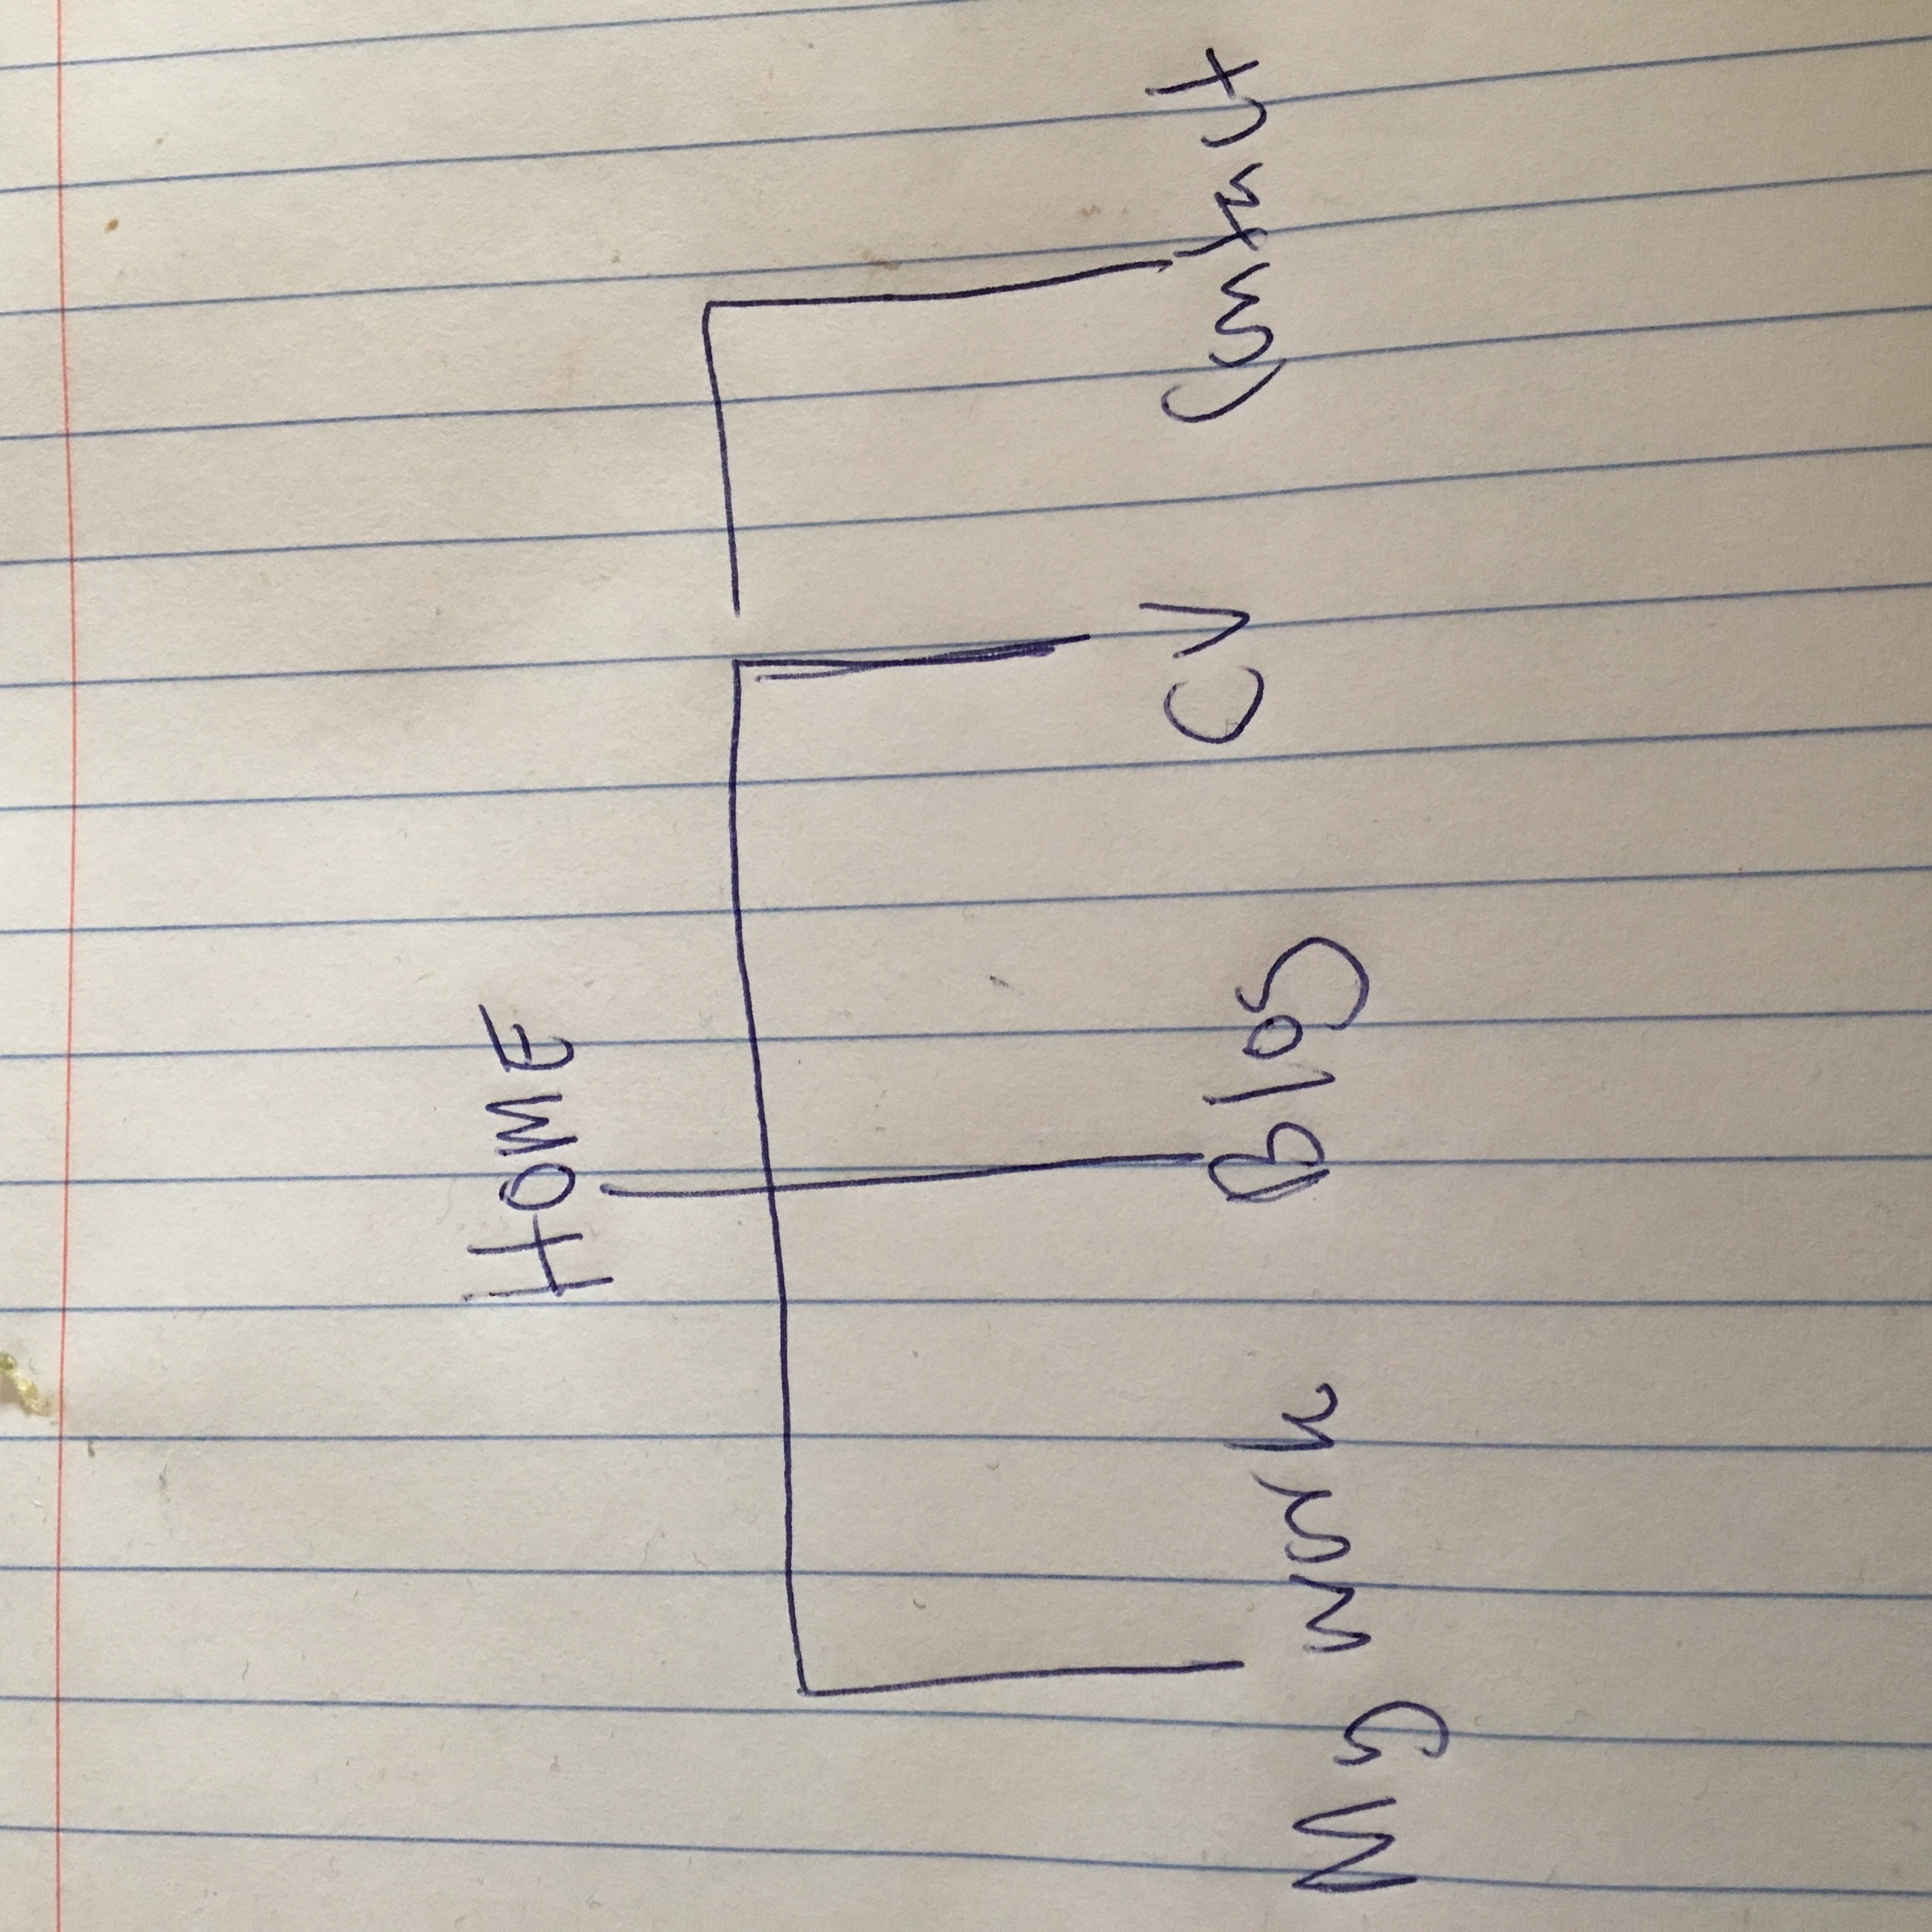 HOME
My work Blog CV Contact